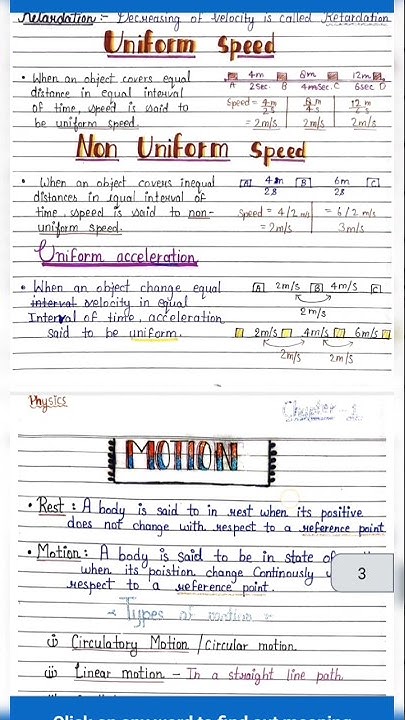 Retardation :- Decreasing of velocity is called Retardation
Uniform Speed
• When an object covers equal
distance in equal interval
of time, speed is said to
be uniform speed.
4m 8m 12m
A 2sec. B 4msec. C 6sec D
Speed = 4m/2s 8m/4s 12m/6s
= 2m/s 2m/s 2m/s
Non Uniform Speed
• When an object covers inequal
distances in equal interval of
time, speed is said to non-
uniform speed.
A 4m B 6m C
2s 2s
Speed = 4/2 m/s = 6/2 m/s
= 2m/s 3m/s
Uniform acceleration
• When an object change equal
interval velocity in equal
Interval of time, acceleration
said to be uniform.
A 2m/s B 4m/s C
2m/s
2m/s 4m/s 6m/s
2m/s 2m/s
Physics
Chapter - 1
MOTION
• Rest : A body is said to in rest when its positive
does not change with respect to a reference point
• Motion : A body is said to be in state of
when its poistion change Continously
respect to a reference point.
3
Types of motion
(i) Circulatory Motion / Circular motion
(ii) Linear motion - In a straight line path
Click on any word to find out meaning